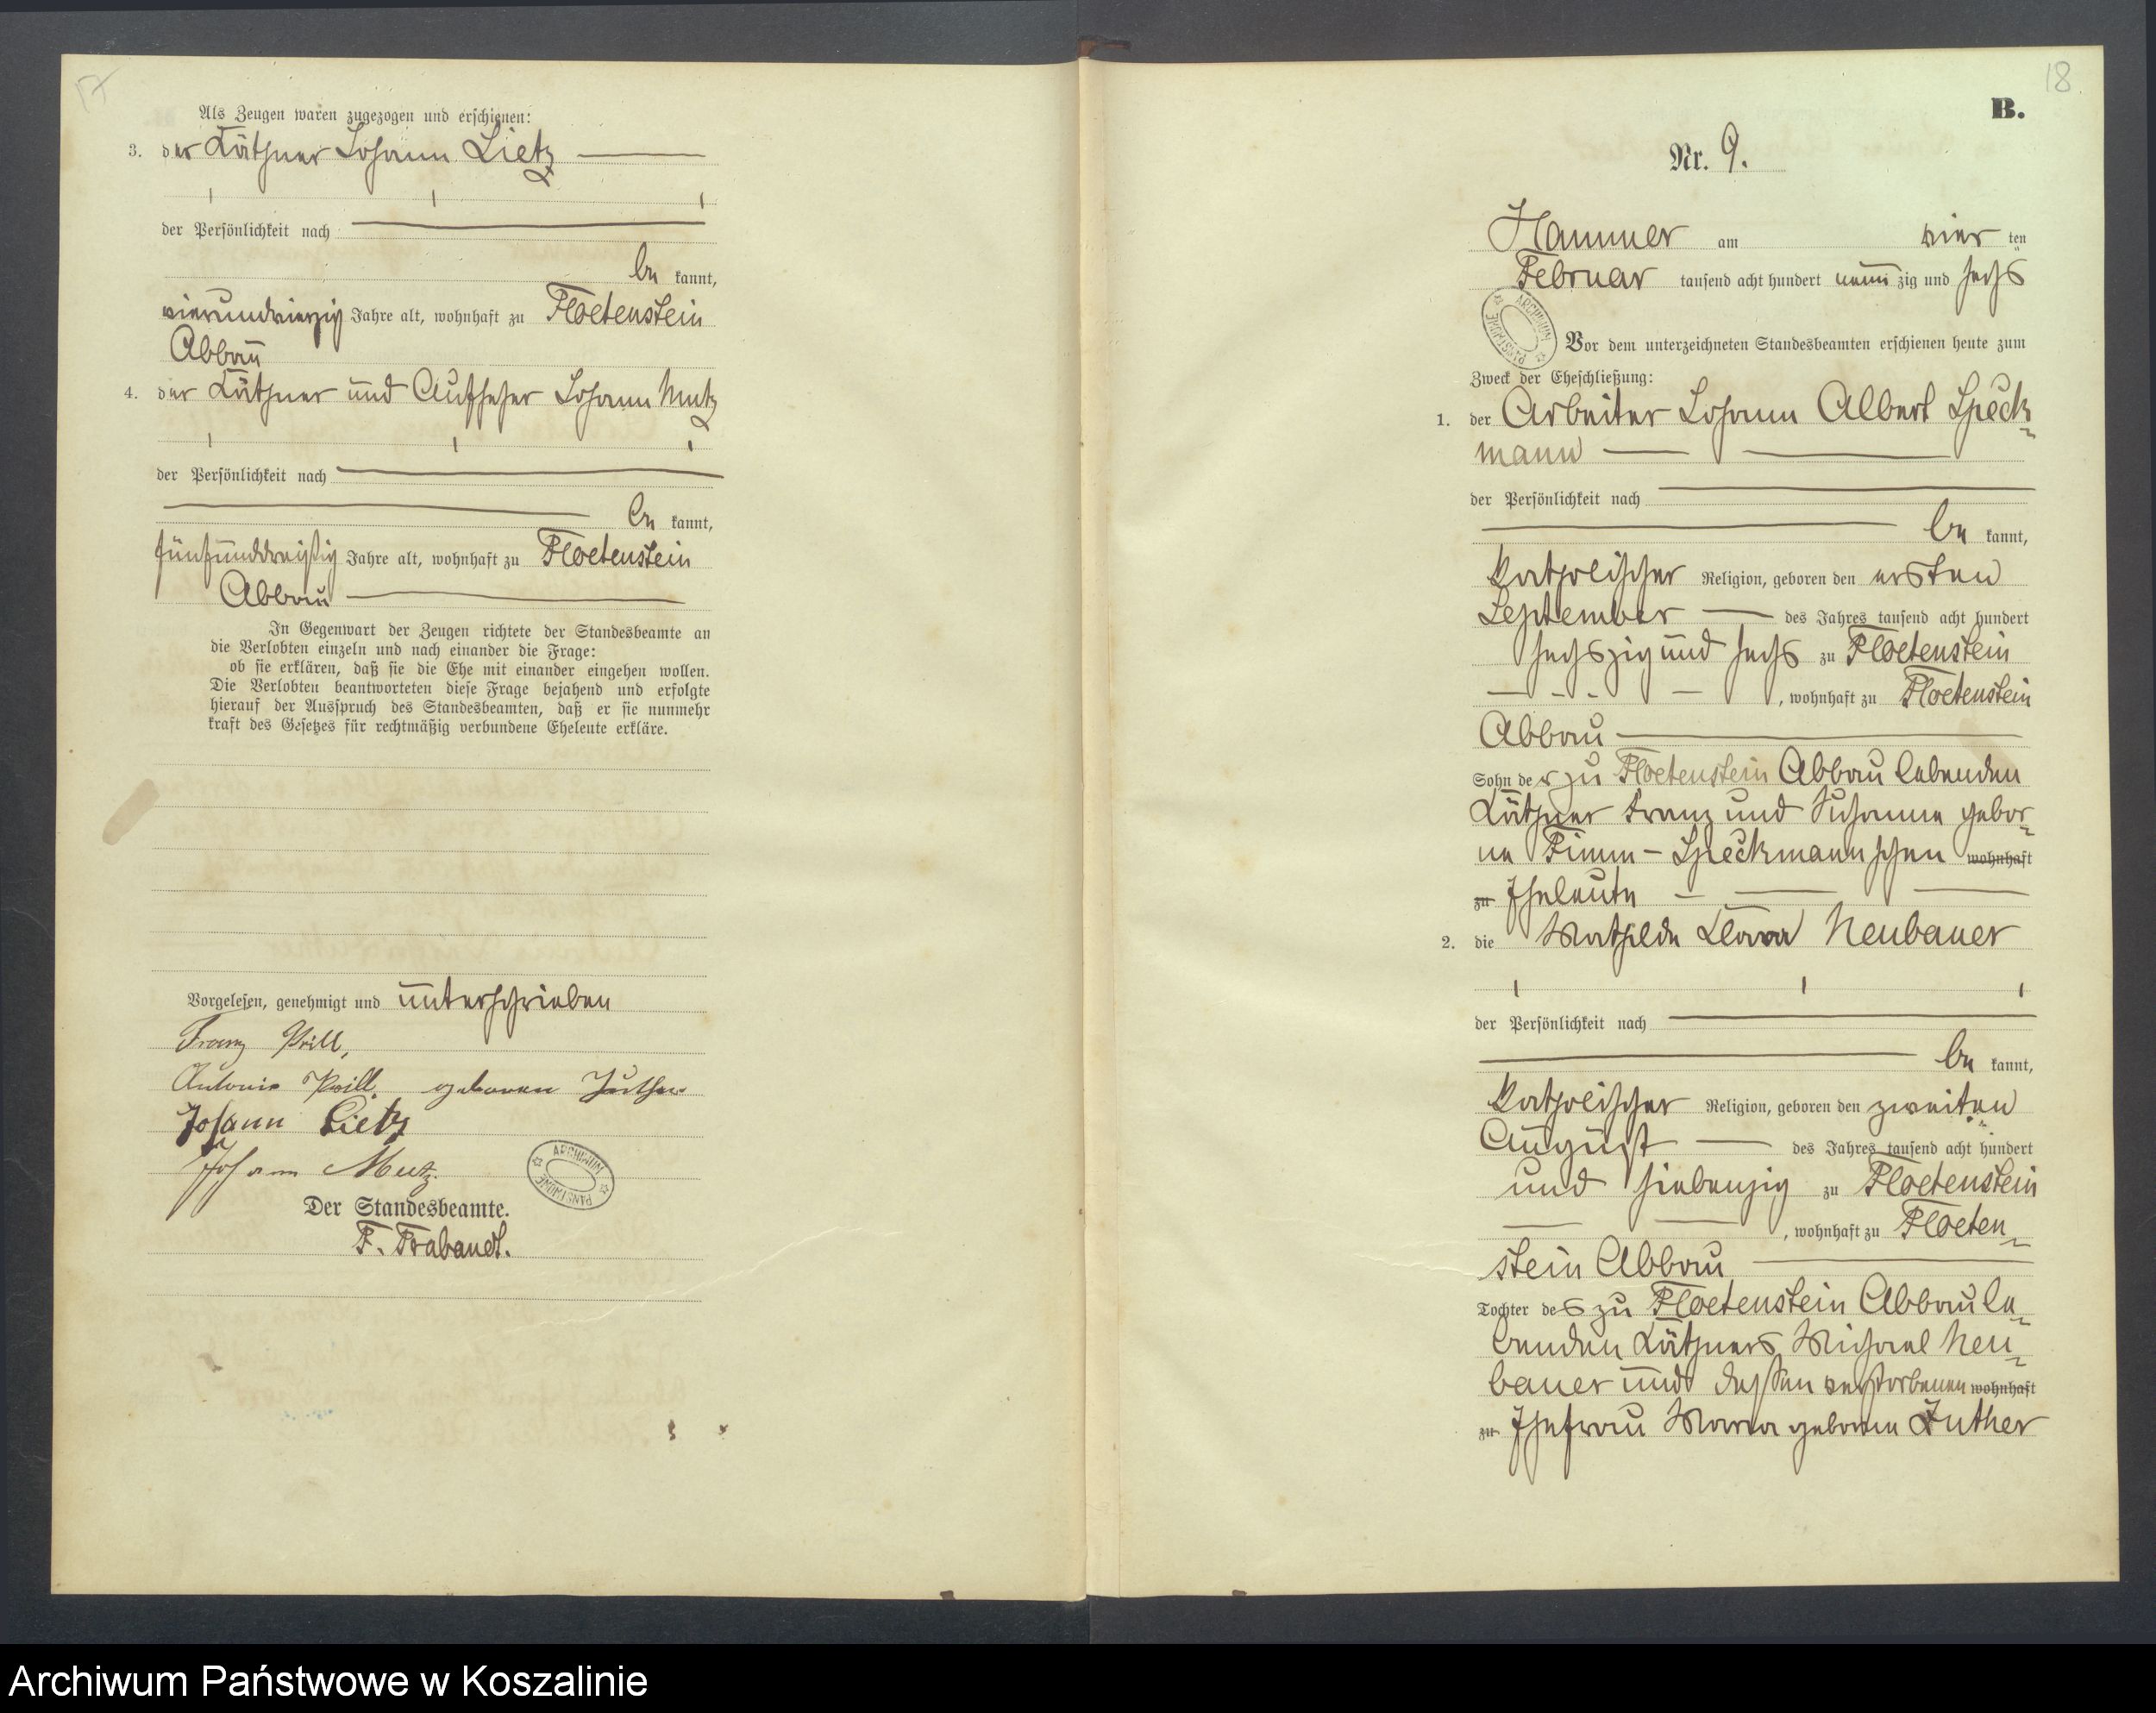 17
Als Zeugen waren zugezogen und erschienen:
3. der Käthner Johann Lietz
der Persönlichkeit nach
be kannt,
vierundvierzig Jahre alt, wohnhaft zu Floetenstein
Abbau
4. der Käthner und Aufseher Johann Mutz
der Persönlichkeit nach
be kannt,
fünfunddreißig Jahre alt, wohnhaft zu Floetenstein
Abbau
In Gegenwart der Zeugen richtete der Standesbeamte an
die Verlobten einzeln und nach einander die Frage:
ob sie erklären, daß sie die Ehe mit einander eingehen wollen.
Die Verlobten beantworteten diese Frage bejahend und erfolgte
hierauf der Ausspruch des Standesbeamten, daß er sie nunmehr
kraft des Gesetzes für rechtmäßig verbundene Eheleute erkläre.
Vorgelesen, genehmigt und unterschrieben
Franz Prill,
Antonie Prill geborene
Johann Lietz
Johann Mutz.
ARCHIWUM PAŃSTWOWE
Der Standesbeamte.
F. Trabandt.
18
B.
Nr. 9.
Hammer am vier ten
Februar tausend acht hundert neun zig und sechs
ARCHIWUM PAŃSTWOWE
Vor dem unterzeichneten Standesbeamten erschienen heute zum
Zweck der Eheschließung:
1. der Arbeiter Johann Albert Speck-
mann
der Persönlichkeit nach
be kannt,
katholischer Religion, geboren den ersten
September des Jahres tausend acht hundert
sechszig und sechs zu Floetenstein
, wohnhaft zu Floetenstein
Abbau
Sohn der zu Floetenstein Abbau lebenden
Käthner Franz und Susanna gebor-
ne Timm-Speckmannschen wohnhaft
zu Eheleute
2. die Mathilde Klara Neubauer
der Persönlichkeit nach
be kannt,
katholischer Religion, geboren den zweiten
August des Jahres tausend acht hundert
und siebenzig zu Floetenstein
, wohnhaft zu Floeten-
stein Abbau
Tochter des zu Floetenstein Abbau le-
benden Käthners Michael Neu-
bauer und dessen verstorbenen wohnhaft
zu Ehefrau Maria geborne Luther
Archiwum Państwowe w Koszalinie